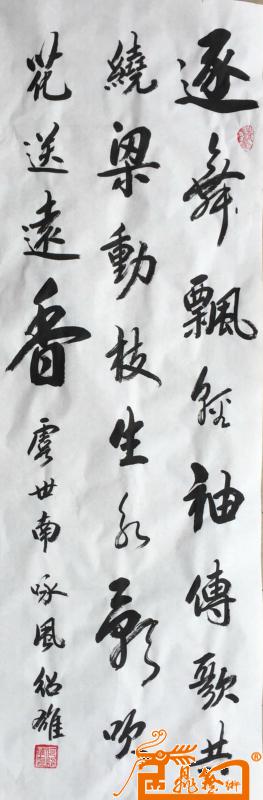 逐舞飄輕袖傳歌共
繞梁動枝生亂影吹
花送遠香 虞世南 咏風 紹雄